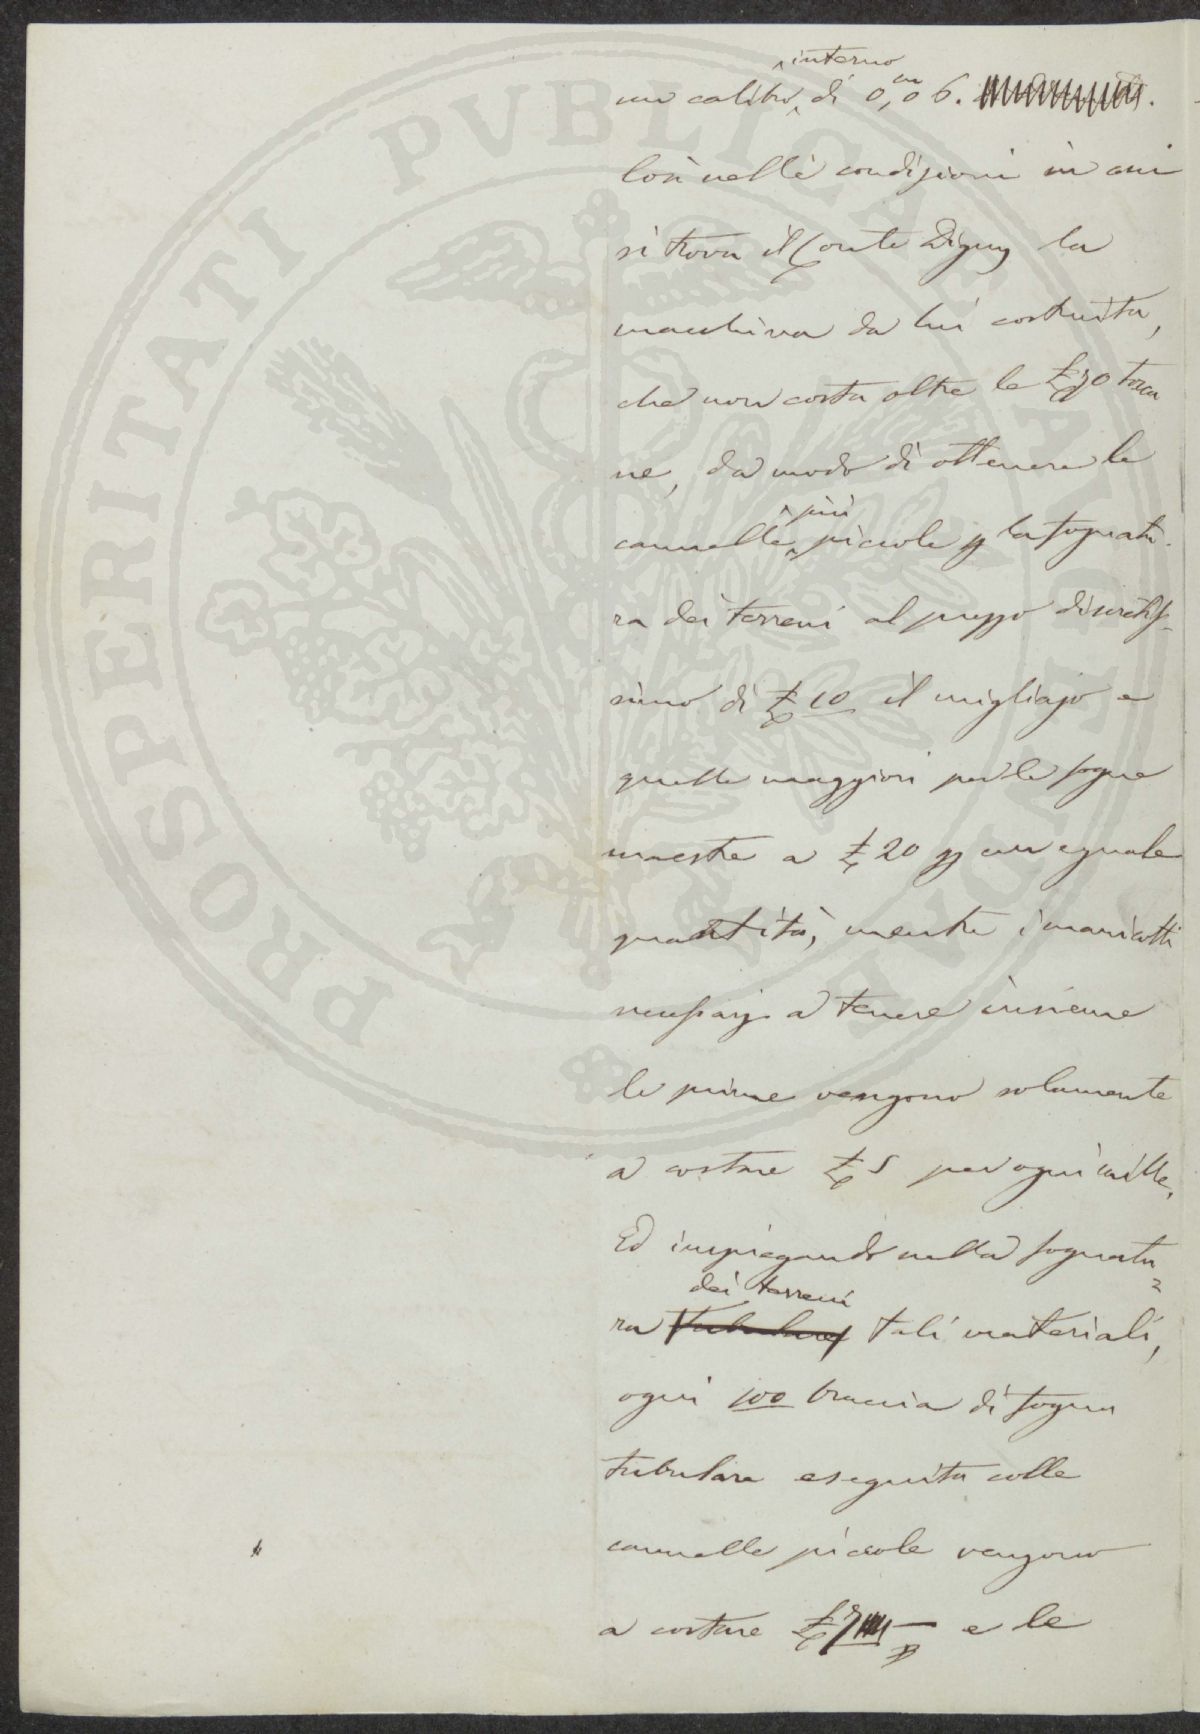 interno
un calibro di 0,ᵐ06.
Così nelle condizioni in cui
si trova il Conte Digny la
macchina da lui costruita,
che non costa oltre le £ 70 tosca
ne, da modo di ottenere le
più
cannelle piccole p la fognatu-
ra dei terreni al prezzo discretis-
simo di £ 10 il migliajo e
quelle maggiori per le fogne
maestre a £ 20 p una eguale
quantità, mentre i manicotti
necessarj a tenere insieme
le prime vengono solamente
a costare £ 5 per ogni mille.
Ed impiegando nella fognatu=
dei terreni
ra tubulare tali materiali,
ogni 100 braccia di fogna
tubulare eseguita colle
cannelle piccole vengono
a costare £ 7 e le
PROSPERITATI PVBLICAE AVGENDAE